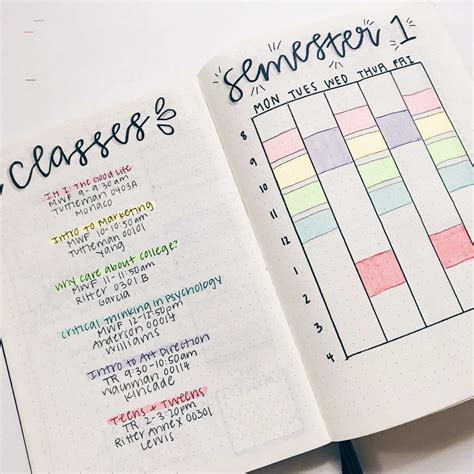 classes
IH I: The Good Life
MWF 9-9:50am
Tuttleman 0403A
Monaco
Intro to Marketing
MWF 10-10:50am
Tuttleman 00101
Yang
Why care about college?
MWF 11-11:50am
Ritter 0301 B
Garcia
Critical Thinking in Psychology
MWF 12-12:50pm
Anderson 00014
Williams
Intro to Art Direction
TR 9:30-10:50am
Wachman 00114
Kincade
Teens & Tweens
TR 2-3:20pm
Ritter Annex 00301
Lewis
semester 1
MON TUES WED THUR FRI
8
9
10
11
12
1
2
3
4